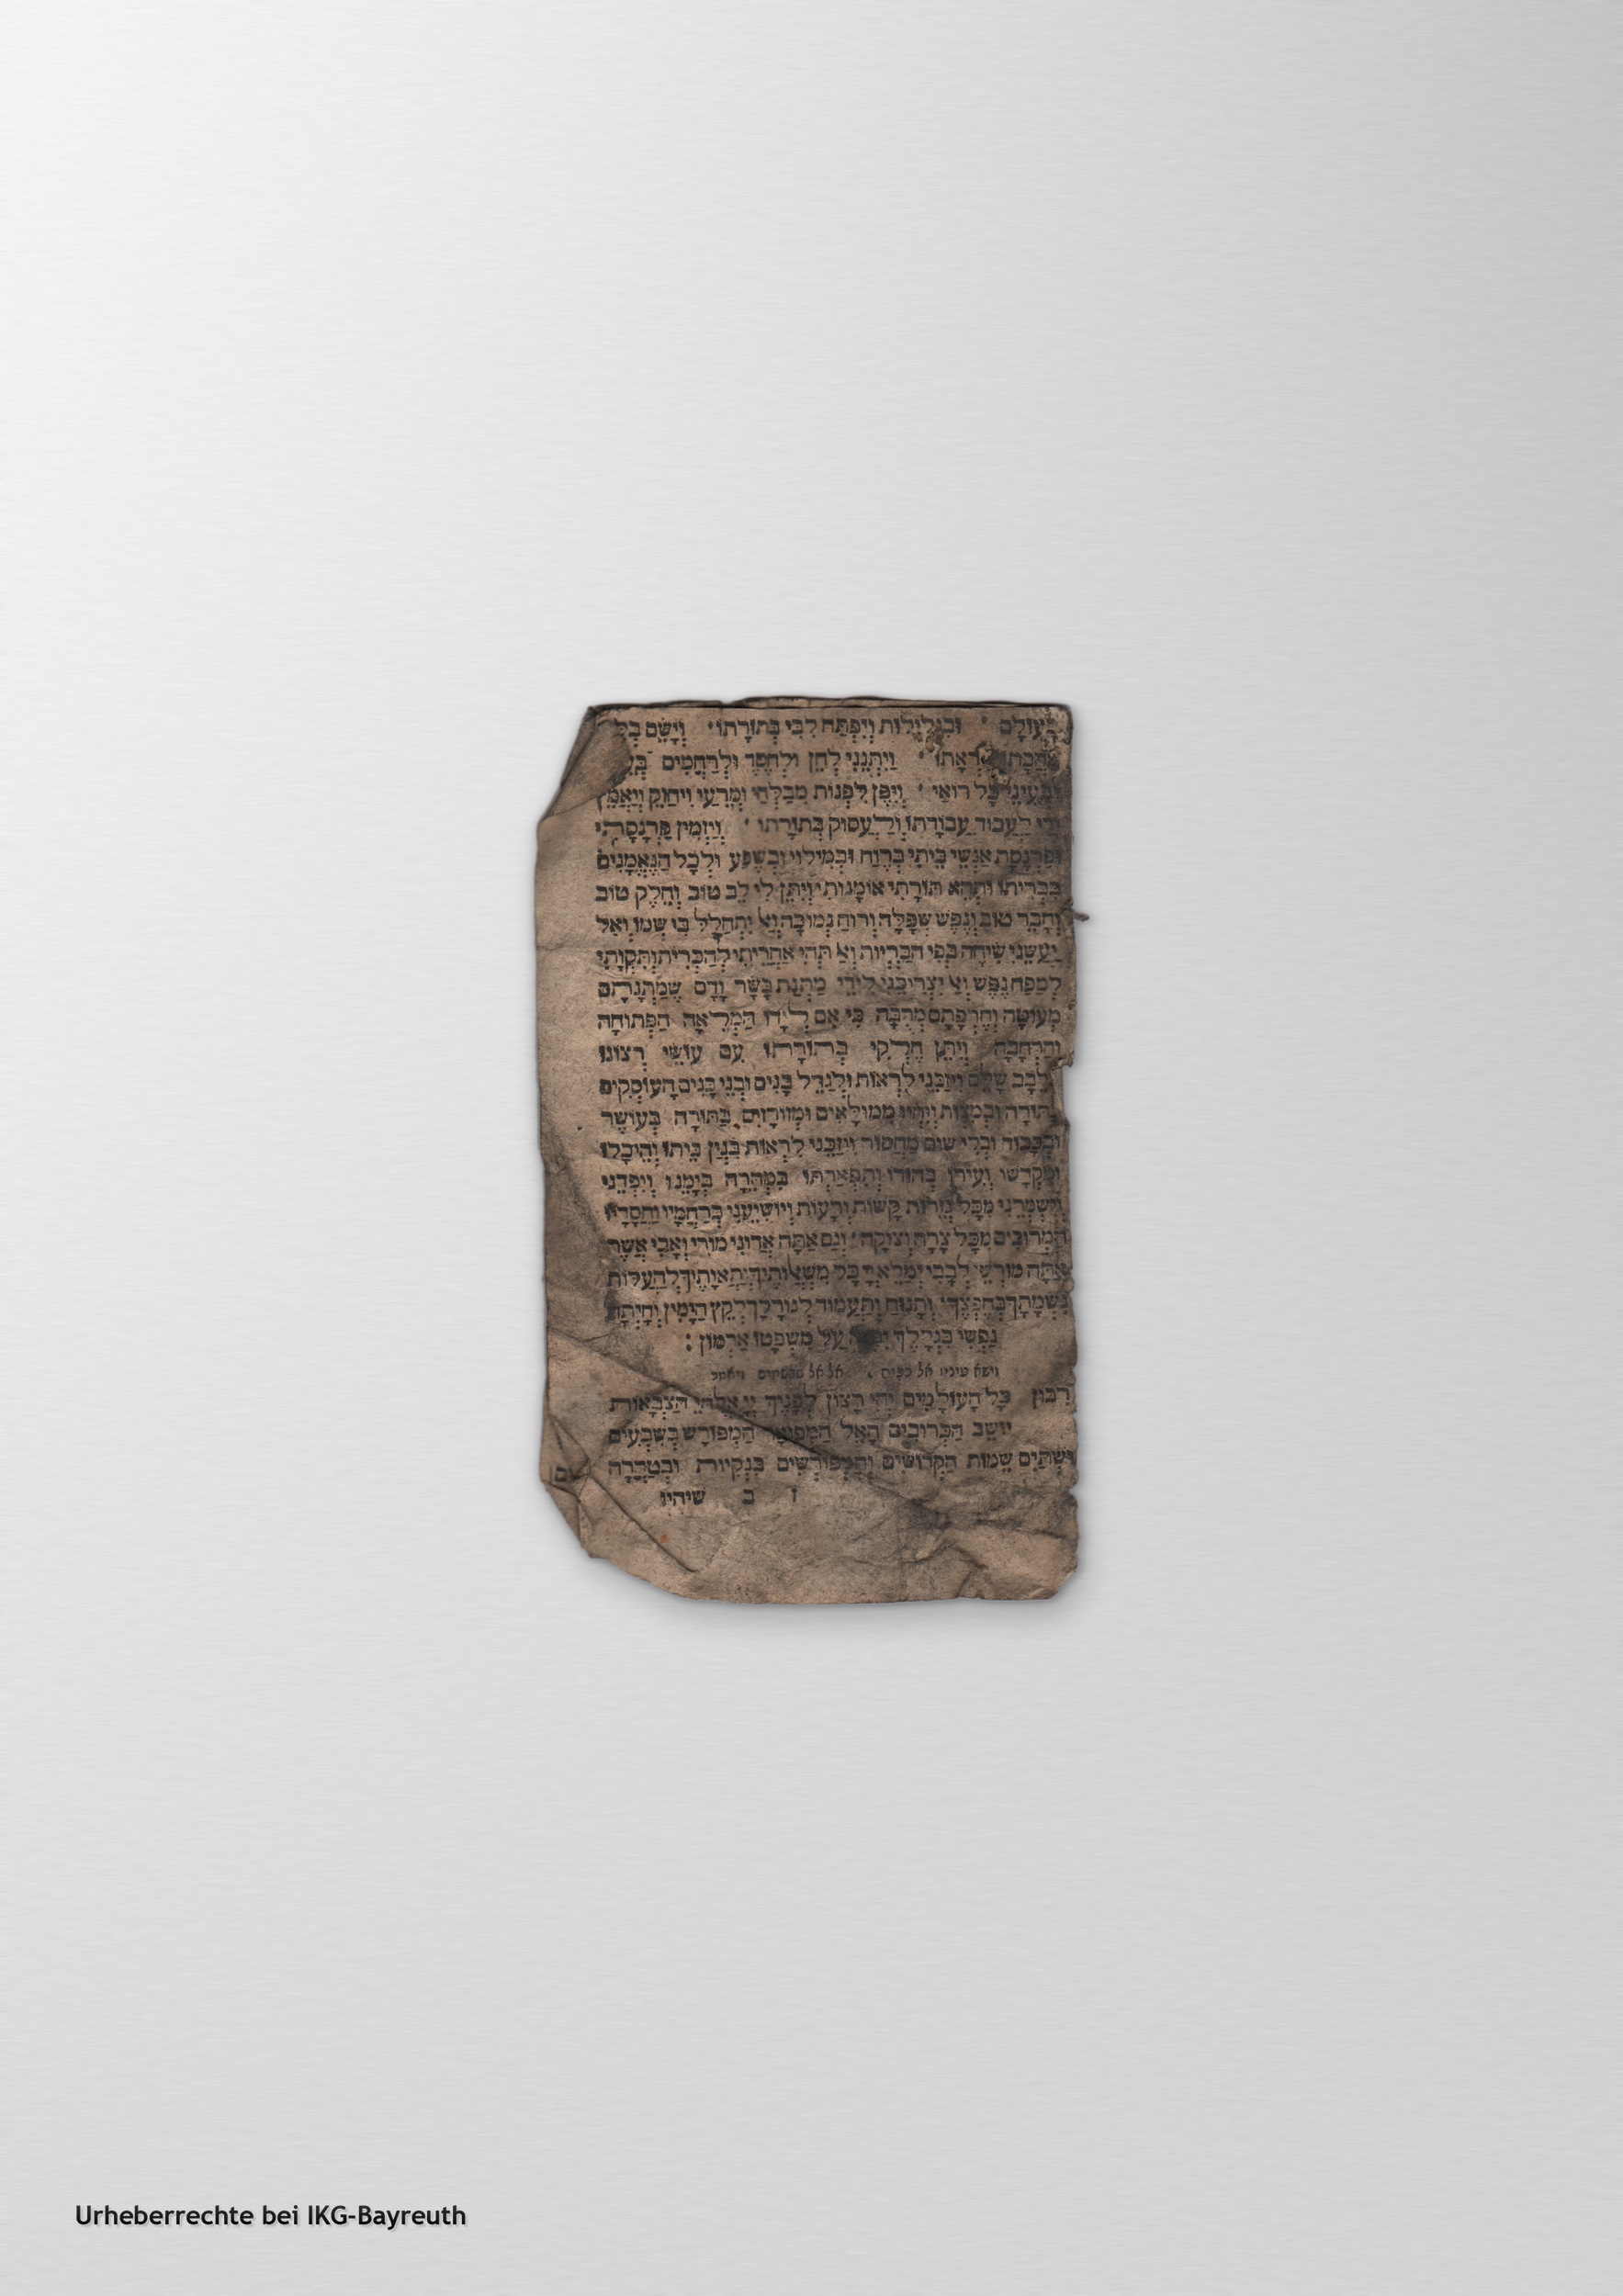 לעולם · ובגלילות ויפתח לבי בתורתו · וישם בלבי
אהבתו ויראתו · ויתנני לחן ולחסד ולרחמים
ובעיני כל רואי · ויפן לפנות מבלחי ומרעי ויחזק ויאמץ
ידי לעבוד עבודתו ולעסוק בתורתו · ויזמין פרנסתי
ופרנסת אנשי ביתי ברוח ובמילוי ובשפע ולכל הנאמנים
בבריתו ותהא תורתי אומנותי ויתן לי לב טוב וחלק טוב
וחבר טוב ונפש שפלה ורוח נמוכה ולא יתחלל בי שמו ואל
יעשני שיחה בפי הבריות ולא תהי אחריתי להכרית ותקותי
למפח נפש ולא יצריכני לידי מתנת בשר ודם שמתנתם
מעוטה וחרפתם מרבה כי אם לידו המלאה הפתוחה
והרחבה ויתן חלקי בתורתו עם עושי רצונו
בלבב שלם ויזכני לראות ולגדל בנים ובני בנים העוסקים
בתורה ובמצות ויהיו ממולאים ומזורזים בתורה בעושר
ובכבוד ובלי שום מחסור ויזכני לראות בנין ביתו והיכלו
ומקדשו ועירו בהודו ותפארתו במהרה בימנו ויפדני
וישמרני מכל גזרות קשות ורעות ויושיעני ברחמיו וחסדיו
המרובים מכל צרה וצוקה · וגם אתה אדוני מורי ואבי אשר
אתה מורשי לבבי ימלא יי כל משאלותיך יתאותיך להעלות
נשמתך בחפצך · ותנוח ותעמוד לגורלך לקץ הימין וחיתה
נפשי בגללך על משפטו ארמון :
וישא עיניו אל כפים אל אל שבשמים ויאמר
רבון כל העולמים יהי רצון לפניך יי אלהי הצבאות
יושב הכרובים האל המפואר המפורש בשבעים
ושתים שמות הקדושים והמפורשים בנקיות ובטהרה
ז ב שיהיו
Urheberrechte bei IKG-Bayreuth